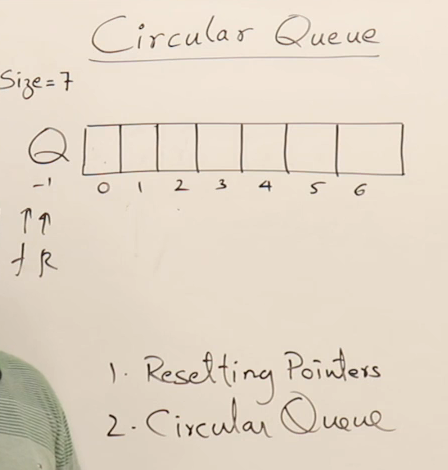 Circular Queue
Size=7
Q
-1 0 1 2 3 4 5 6
f R
1. Resetting Pointers
2. Circular Queue